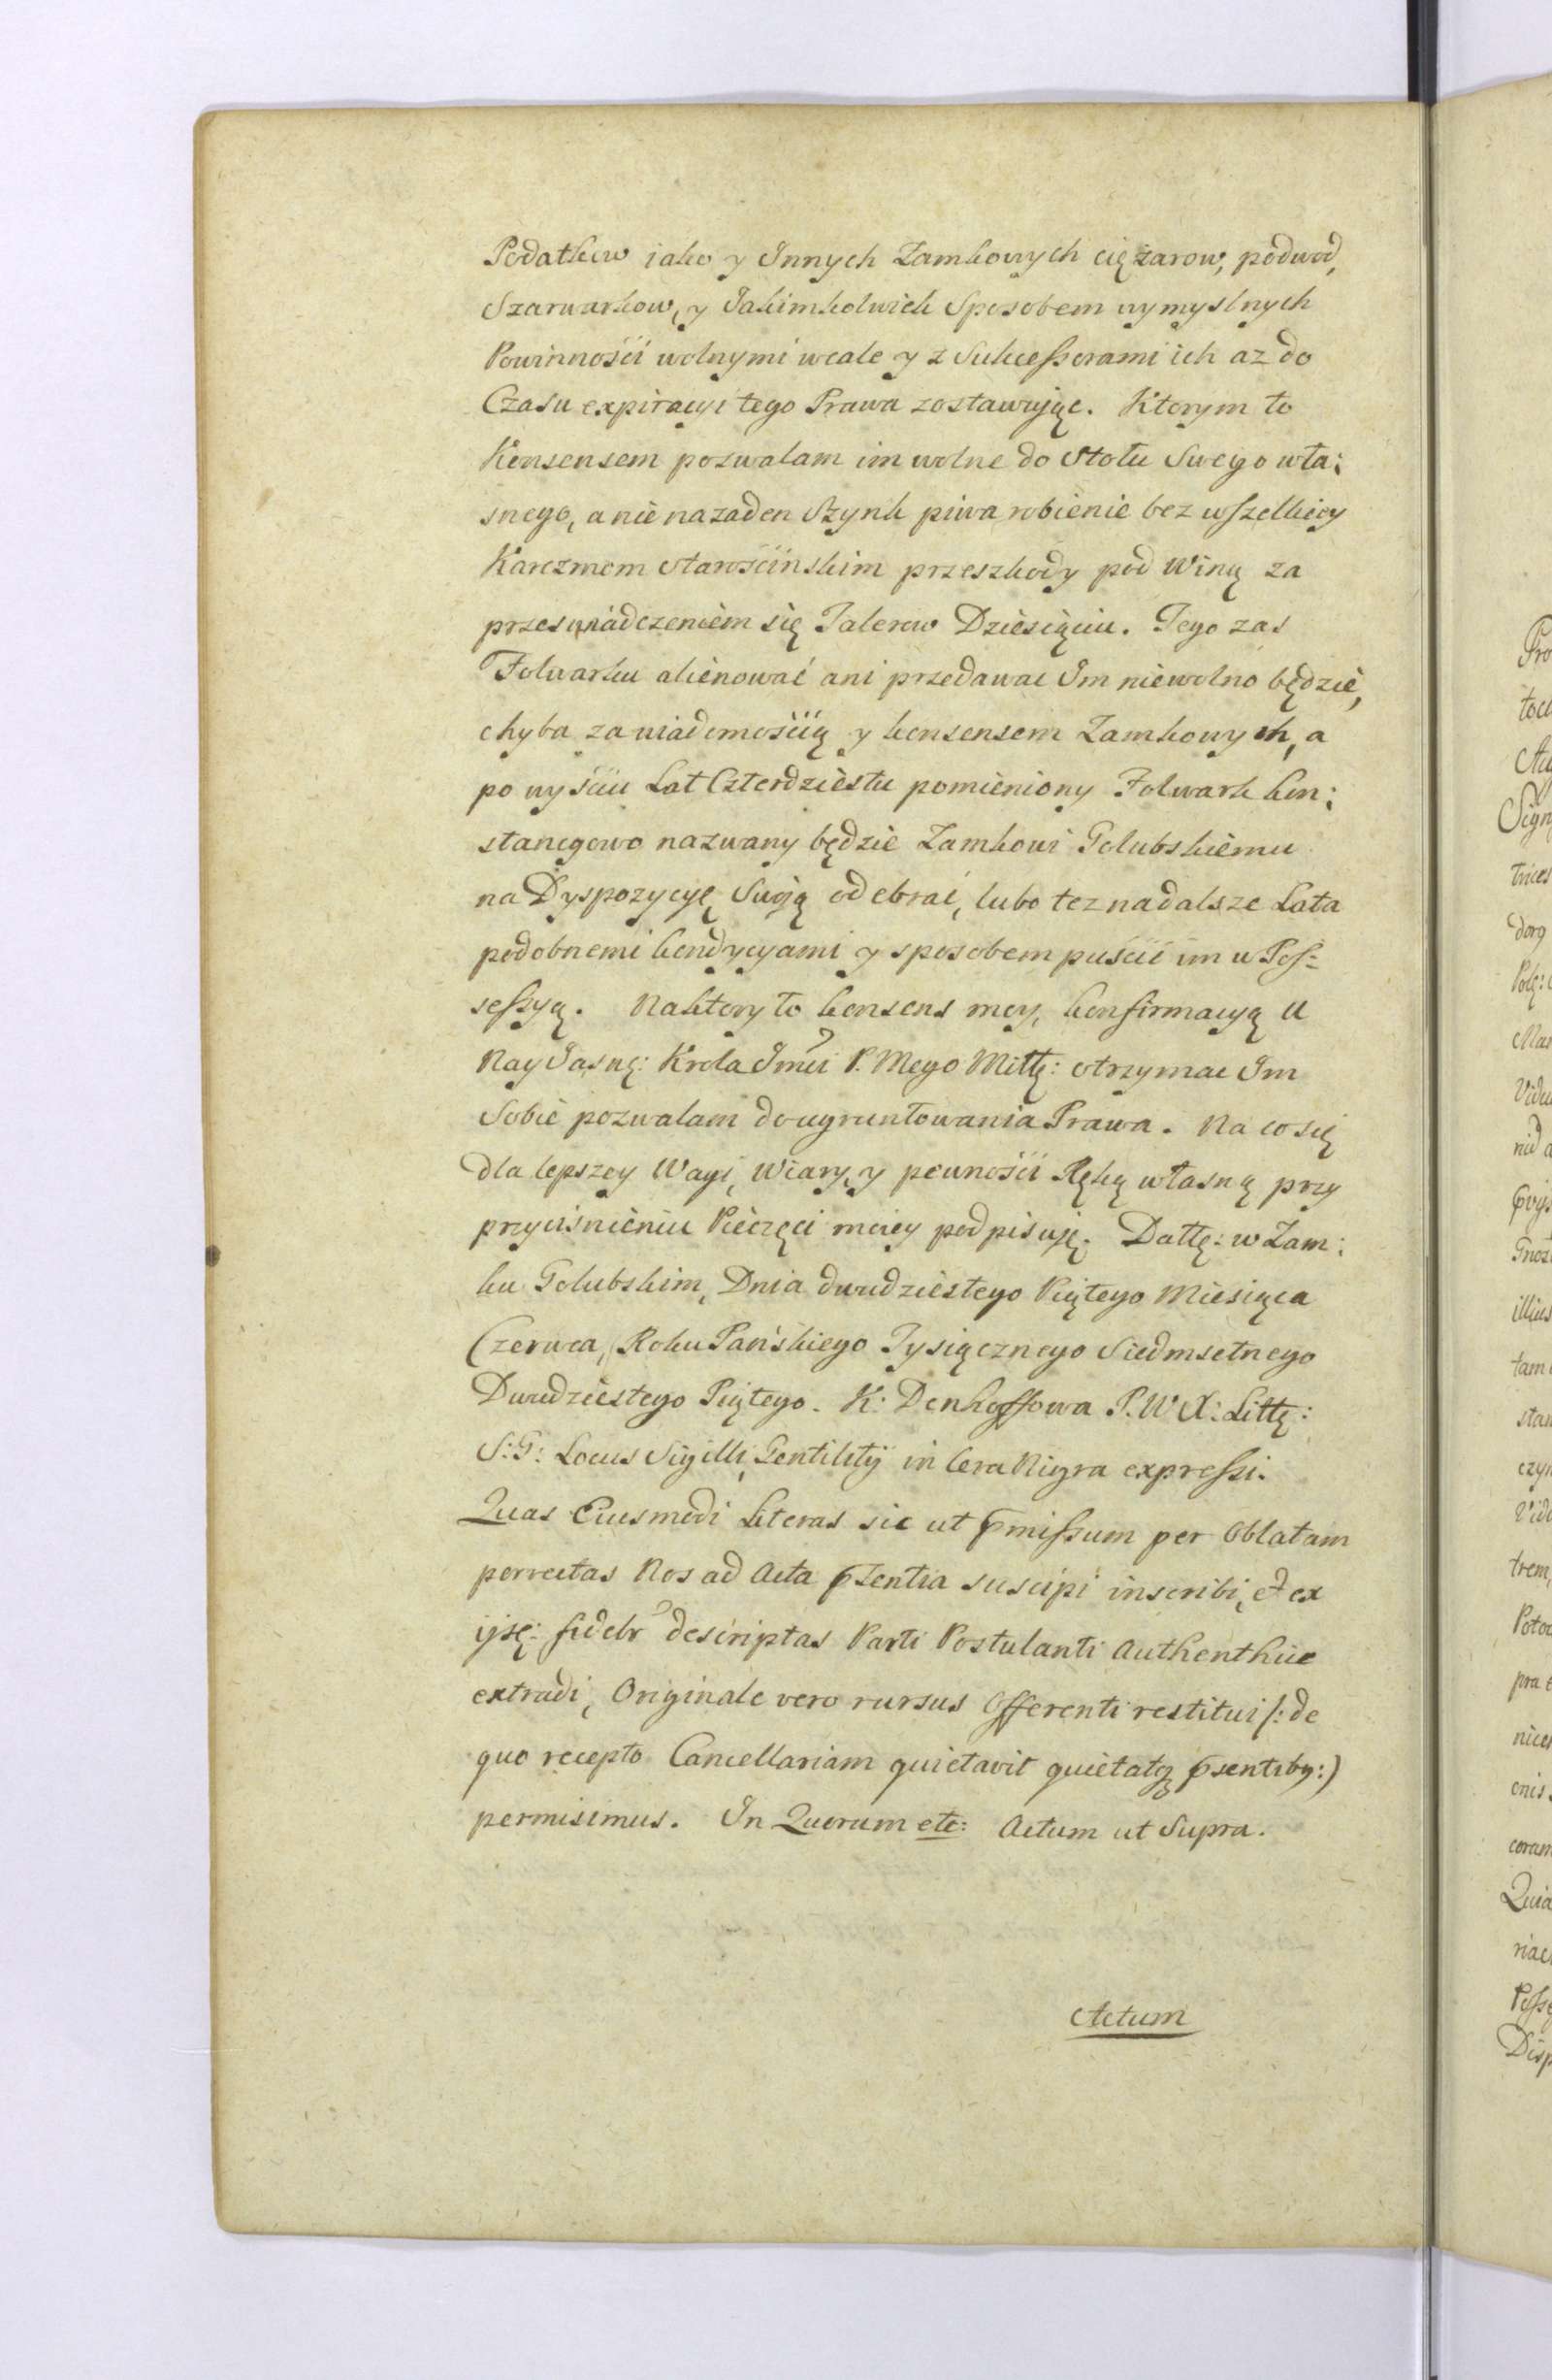 Podatkow iako y Innych Zamkowych ciężarow, podwod,
Szarwarkow, y Jakimkolwiek Sposobem wymyslnych
Powinności wolnymi wcale y z Sukcessorami ich az do
Czasu expiracyi tego Prawa zostawując. Ktorym to
Konsensem pozwalam im wolne do Stołu Swego wła:
snego, a nie nazaden Szynk piwa robienie bez wszelkiey
Karczmom Starościnskim przeszkody pod Winą za
przeswiadczeniem się Talerow Dziesięciu. Tego zas
Folwarku alienować ani przedawac Im niewolno będzie,
chyba za wiadomością y konsensem Zamkowym, a
po wyściu Lat Czterdziestu pomieniony Folwark kon:
stancyowo nazwany będzie Zamkowi Golubskiemu
na Dyspozycyę Swoją odebrać, lubo tez nadalsze Lata
podobnemi kondycyami y sposobem puścić im w Pos:
sessyą. Naktory to konsens moy, konfirmacyą u
Nay Jasnę: Krola Jmći P. Mego Miłłę: otrzymac Im
Sobie pozwalam dougruntowania Prawa. Na co się
dla lepszey Wagi, Wiary, y pewności Ręką własną przy
przyciśnieniu Pieczęci moiey podpisuję. Dattę: w Zam:
ku Golubskim, Dnia dwudziestego Piątego Miesiąca
Czerwca, Roku Pańskiego Tysiącznego Siedmsetnego
Dwudziestego Piątego. K: Denhoffowa P. W X: Littę:
S: G: Locus Sigilli Gentilitÿ in Cera Nigra expressi.
Quas Eiusmodi Literas sic ut p̄missum per Oblatam
porrectas Nos ad Acta p̄sentia suscipi inscribi, et ex
ijsę: fidelr descriptas Parti Postulanti Authenthice
extradi, Originale vero rursus Offerenti restitui /: de
quo recepto Cancellariam quietavit quietatq p̄sentiby:)
permisimus. In Quorum etc: Actum ut Supra.
Actum